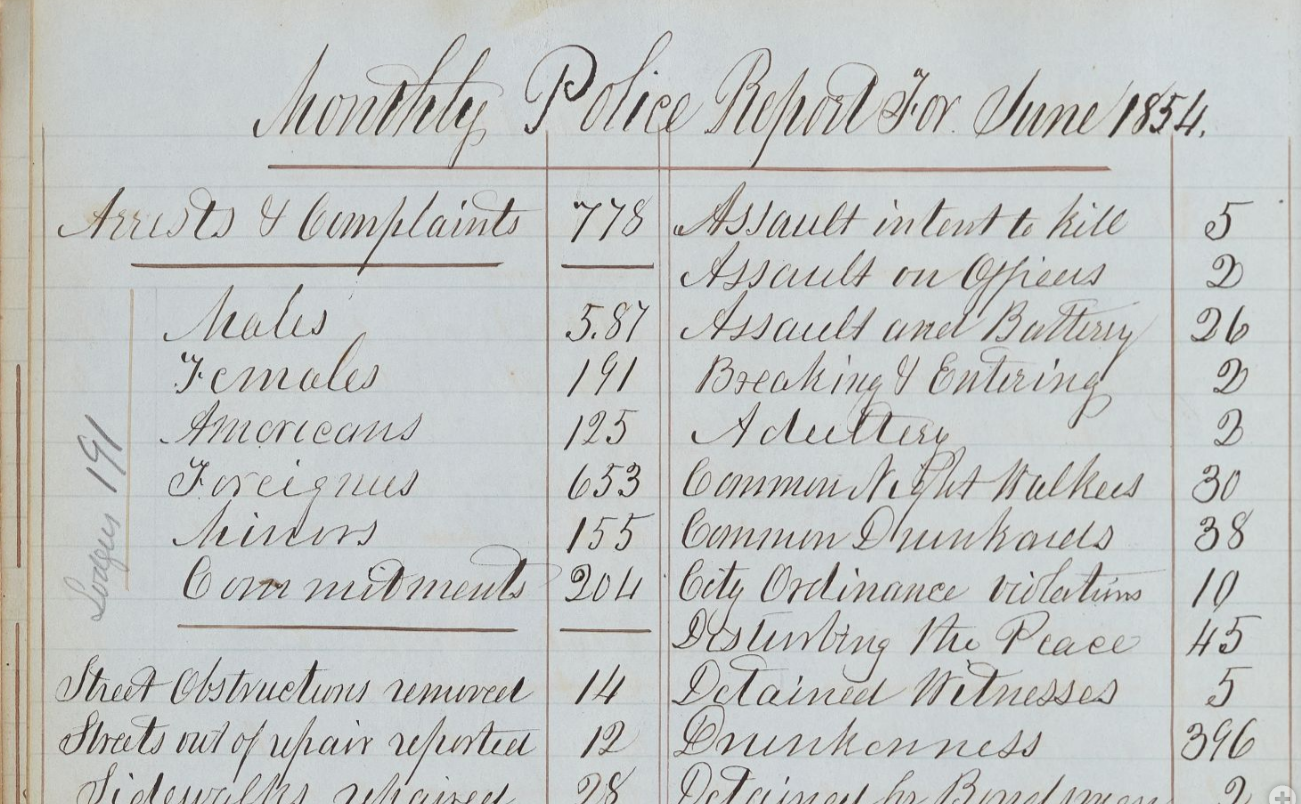 Monthly Police Report For June 1854.
Arrests & Complaints 778
Males 5.87
Females 191
Americans 125
Foreigners 653
Minors 155
Commitments 204
Lodgers 191
Street Obstructions removed 14
Streets out of repair reported 12
Sidewalks repaired 28
Assault intent to kill 5
Assault on Officers 2
Assault and Battery 26
Breaking & Entering 2
Adultery 2
Common Night Walkers 30
Common Drunkards 38
City Ordinance violations 10
Disturbing the Peace 45
Detained Witnesses 5
Drunkenness 396
Detained for Bondsman 2